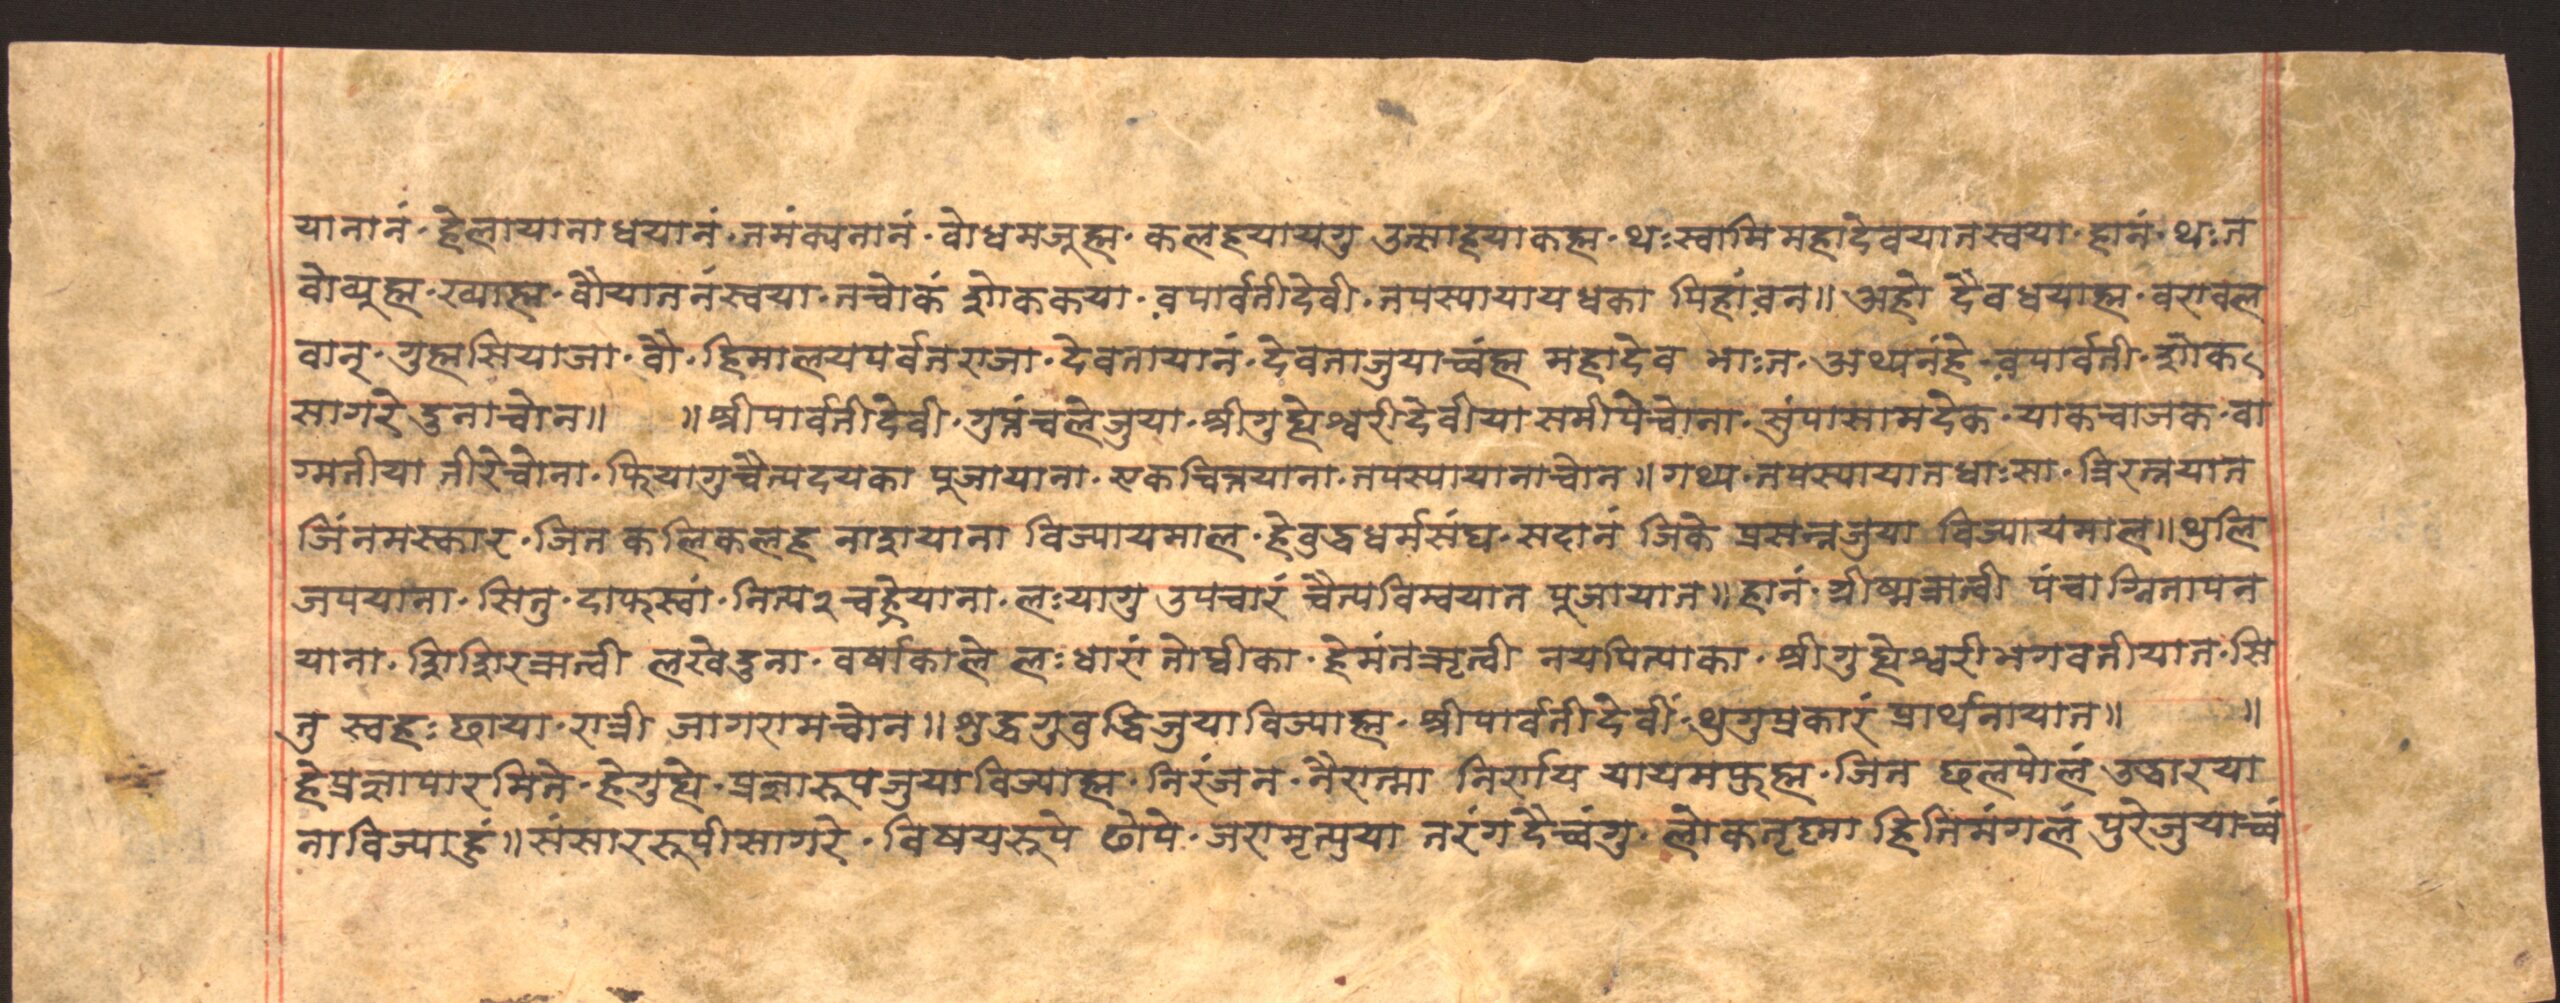 यानानं · हेलायानाधयानं · तमंक्यनानं · वोधमजूह्म · कलहयायगु उत्साहयाकह्म · थःस्वामि महादेवयातस्वया · हानं · थःत
वोव्यूह्म · रव्याह्म · वौयातनंस्वया · तच्वोकं शोककया · वपार्वतीदेवी · तपस्यायायधका पिहांवन॥ अहो दैवधयाह्म · वरावल
वान् · गुह्मसियाजा · वौ · हिमालयपर्वतराजा · देवतायानं · देवताजुयाच्वंह्म महादेव भाःत · अथ्यनंहे · वपार्वती · शोक
सागरे दुनाच्वोन॥ ॥श्रीपार्वतीदेवी · गुप्तंच्वलेजुया · श्रीगुह्येश्वरीदेवीया समीपेच्वोना · सुंपासामदेक · याकच्वाजक · वा
ग्मतीया तीरेच्वोना · फियागुचैत्यदयका पूजायाना · एकचित्तयाना · तपस्यायानाच्वोन॥ गथ्य · तपस्यायातधाःसा · त्रिरत्नयात
जिंनमस्कार · जित कलिकलह नाशयाना विज्यायमाल · हेवुद्धधर्मसंघ · सदानं जिके प्रसन्नजुया विज्यायमाल॥ थुलि
जपयाना · सितु · दाफस्वां · नित्य२ चह्रेयाना · लःयागु उपचारं चैत्यविम्वयात पूजायात॥ हानं · ग्रीष्मऋतुवी पंचाग्नितापन
याना · शिशिरऋतुवी लखेदुना · वर्षाकाले लःधारां तोप्वीका · हेमंतऋतुवी नयपित्याका · श्रीगुह्येश्वरीभगवतीयात · सि
तु स्वह्नः छाया · रात्री जागरामच्वोन॥ शुद्धगुवुद्धिजुयाविज्याह्म · श्रीपार्वतीदेवीं · थुगुप्रकारं प्रार्थनायात॥ ॥
हेप्रज्ञापारमिते · हेगुह्ये · प्रज्ञारूपजुयाविज्याह्म · निरंजन · नैरात्मा निर्राय यायमफुह्म · जित छलपोलं उद्धारया
नाविज्याहुं॥ संसाररूपीसागरे · विषयरूपे छोपे · जरामृत्युया तरंगदैच्वंगु · लोकतृष्णा हितिमंगलं पुरेजुयाच्वं